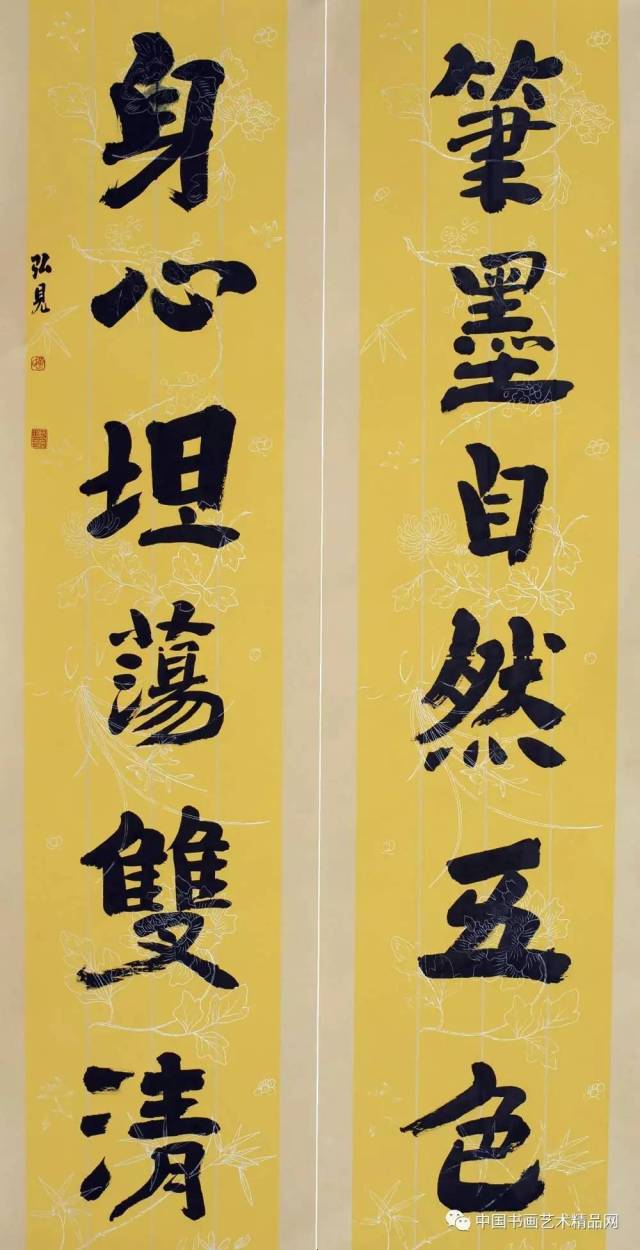 筆墨自然五色
身心坦蕩雙清
弘見
中国书画艺术精品网